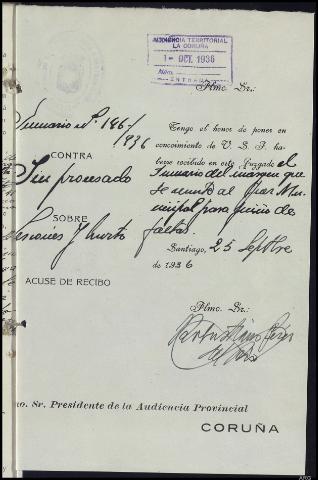 AUDIENCIA TERRITORIAL
LA CORUÑA
1 - OCT. 1936
Núm.
ENTRADA
Iltmo. Sr.:
Sumario nº. 146/
1936
CONTRA
Sin procesado
SOBRE
Lesiones y hurto
ACUSE DE RECIBO
Tengo el honor de poner en
conocimiento de V. S. I. ha-
berse recibido en este Juzgado el
Sumario del margen que
se remitió al Juez Mu-
nicipal para juicio de
faltas.
Santiago, 25 Septbre
de 1936
Iltmo. Sr.:
mo. Sr. Presidente de la Audiencia Provincial
CORUÑA